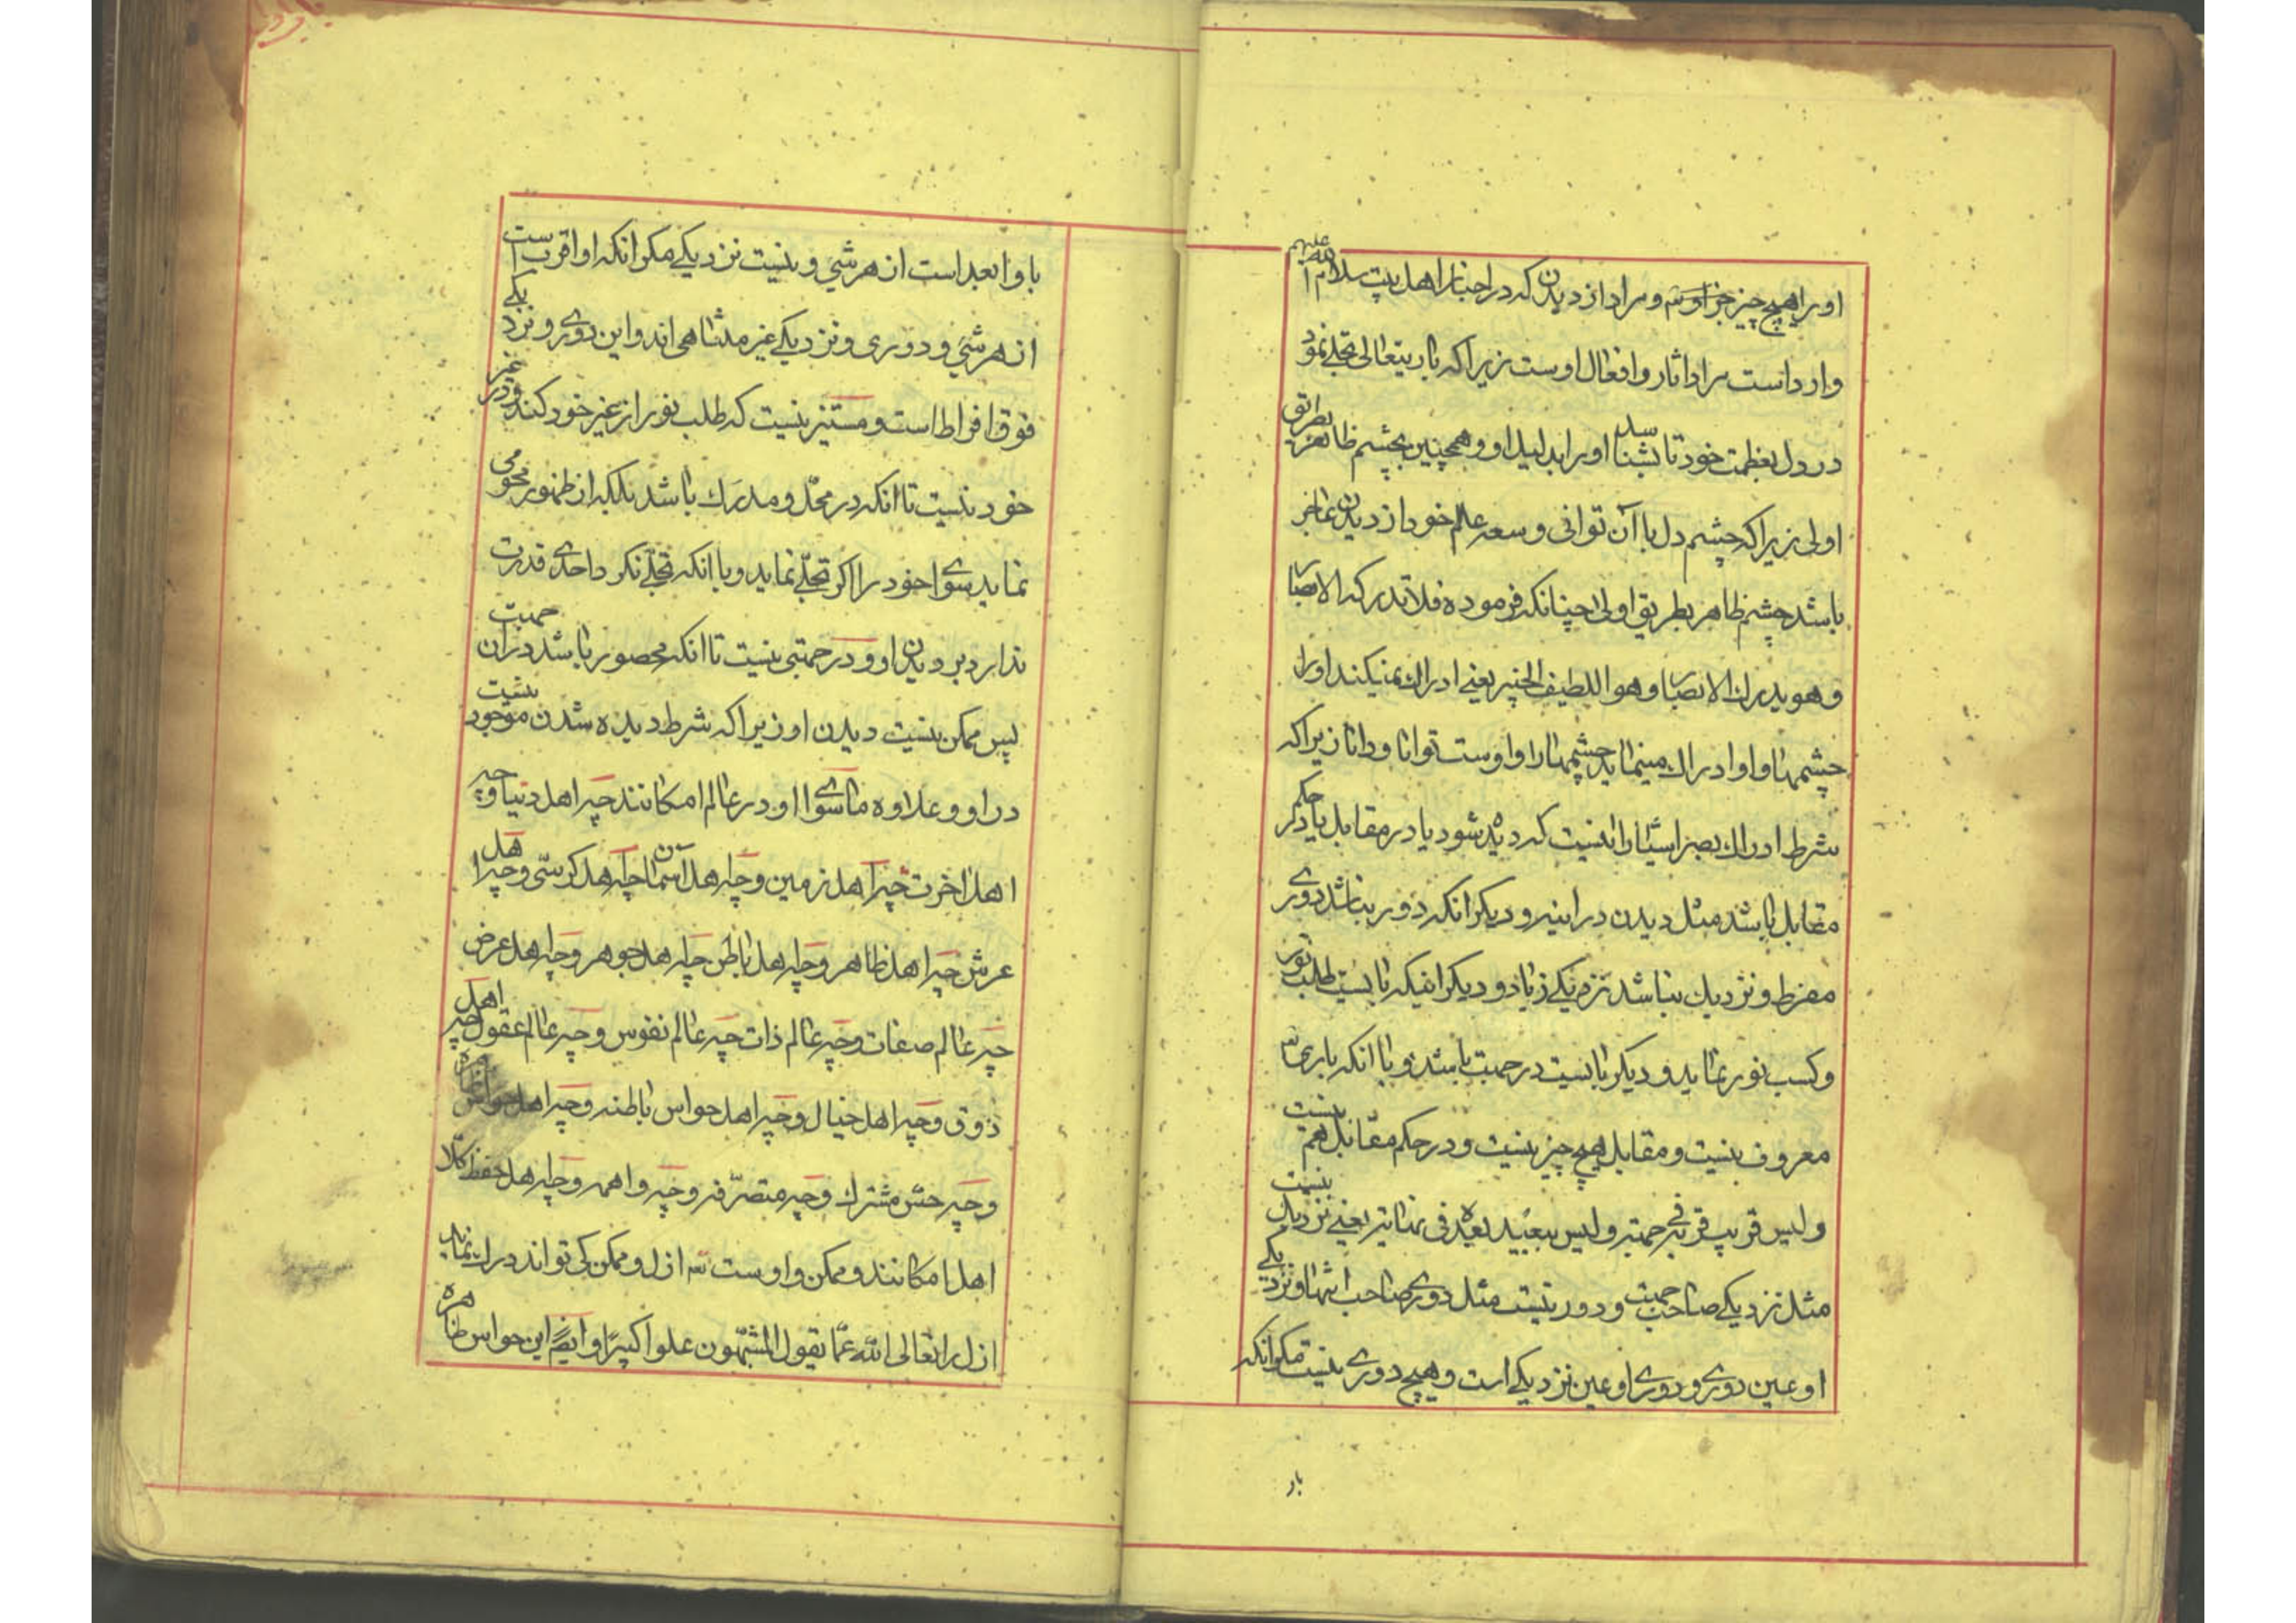 اورا هیچ چیز جز اوست و مراد از دیدن که در اخبار اهل بیت سلام الله علیهم
وارد است مراد اثار و افعال اوست زیرا که باریتعالی تجلی نمود
در دل بعظمت خود تا بشناسد اورا بدلیل او و همچنین بچشم ظاهر بطریق
اولی زیرا که چشم دل با آن توانی و سعه عالم خود از دیدن عاجز
باشد چشم ظاهر بطریق اولی چنانکه فرموده فلا تدرکه الابصار
و هو یدرك الابصار و هو اللطیف الخبیر یعنی ادراك نمیکند اورا
چشمها و او ادراك مینماید چشمها را و اوست توانا و دانا زیرا که
شرط ادراك بصر اشیا را اینست که دیده شود یا در مقابل یا در حکم
مقابل باشد مثل دیدن در اینه و دیکر انکه دور نباشد دوری
مفرط و نزدیك نباشد نزدیکی زیاد و دیکر انیکه بایست طلب نور
و کسب نور نماید و دیکر بایست در جهت باشد و با انکه باری
معروف نیست و مقابل هیچ چیز نیست و در حکم مقابل هم نیست
و لیس قریب قربه فی جهته و لیس ببعید بعده فی نهایته یعنی نزدیك نیست
مثل نزدیکی صاحب جهت و دور نیست مثل دوری صاحب انتها و نزدیکی
او عین دوری و دوری او عین نزدیکی است و هیچ دوری نیست مکر انکه
بار
با و ابعد است از هر شی و نیست نزدیکی مکر انکه او اقرب است
از هر شی و دوری و نزدیکی غیر متناهی اند و این دوری و نزدیکی
فوق افراط است و مستنیر نیست که طلب نور از غیر خود کند و در غیر
خود نیست تا انکه در محل و مدرك باشد بلکه از ظهور محو می
نماید سوای خود را اکر تجلی نماید و با انکه تجلی نکرد احدی قدرت
ندارد بر دیدن او و در جهتی نیست تا انکه محصور باشد در ان جهت
پس ممکن نیست دیدن او زیرا که شرط دیده شدن موجود نیست
در او و علاوه ما سوای او در عالم امکانند چه اهل دنیا و چه
اهل اخرت چه اهل زمین و چه اهل آسمان چه اهل کرسی و چه اهل
عرش چه اهل ظاهر و چه اهل باطن چه اهل جوهر و چه اهل عرض
چه عالم صفات و چه عالم ذات چه عالم نفوس و چه عالم عقول چه اهل
ذوق و چه اهل خیال و چه اهل حواس باطنه و چه اهل حواس ظاهره
و چه حس مشترك و چه متصرفه و چه واهمه و چه اهل حفظ کلا
اهل امکانند و ممکن و اوست ازل و ممکن کی تواند دراك نماید
ازل را تعالی الله عما یقول المشبهون علوا کبیرا و ایضا این حواس ظاهره